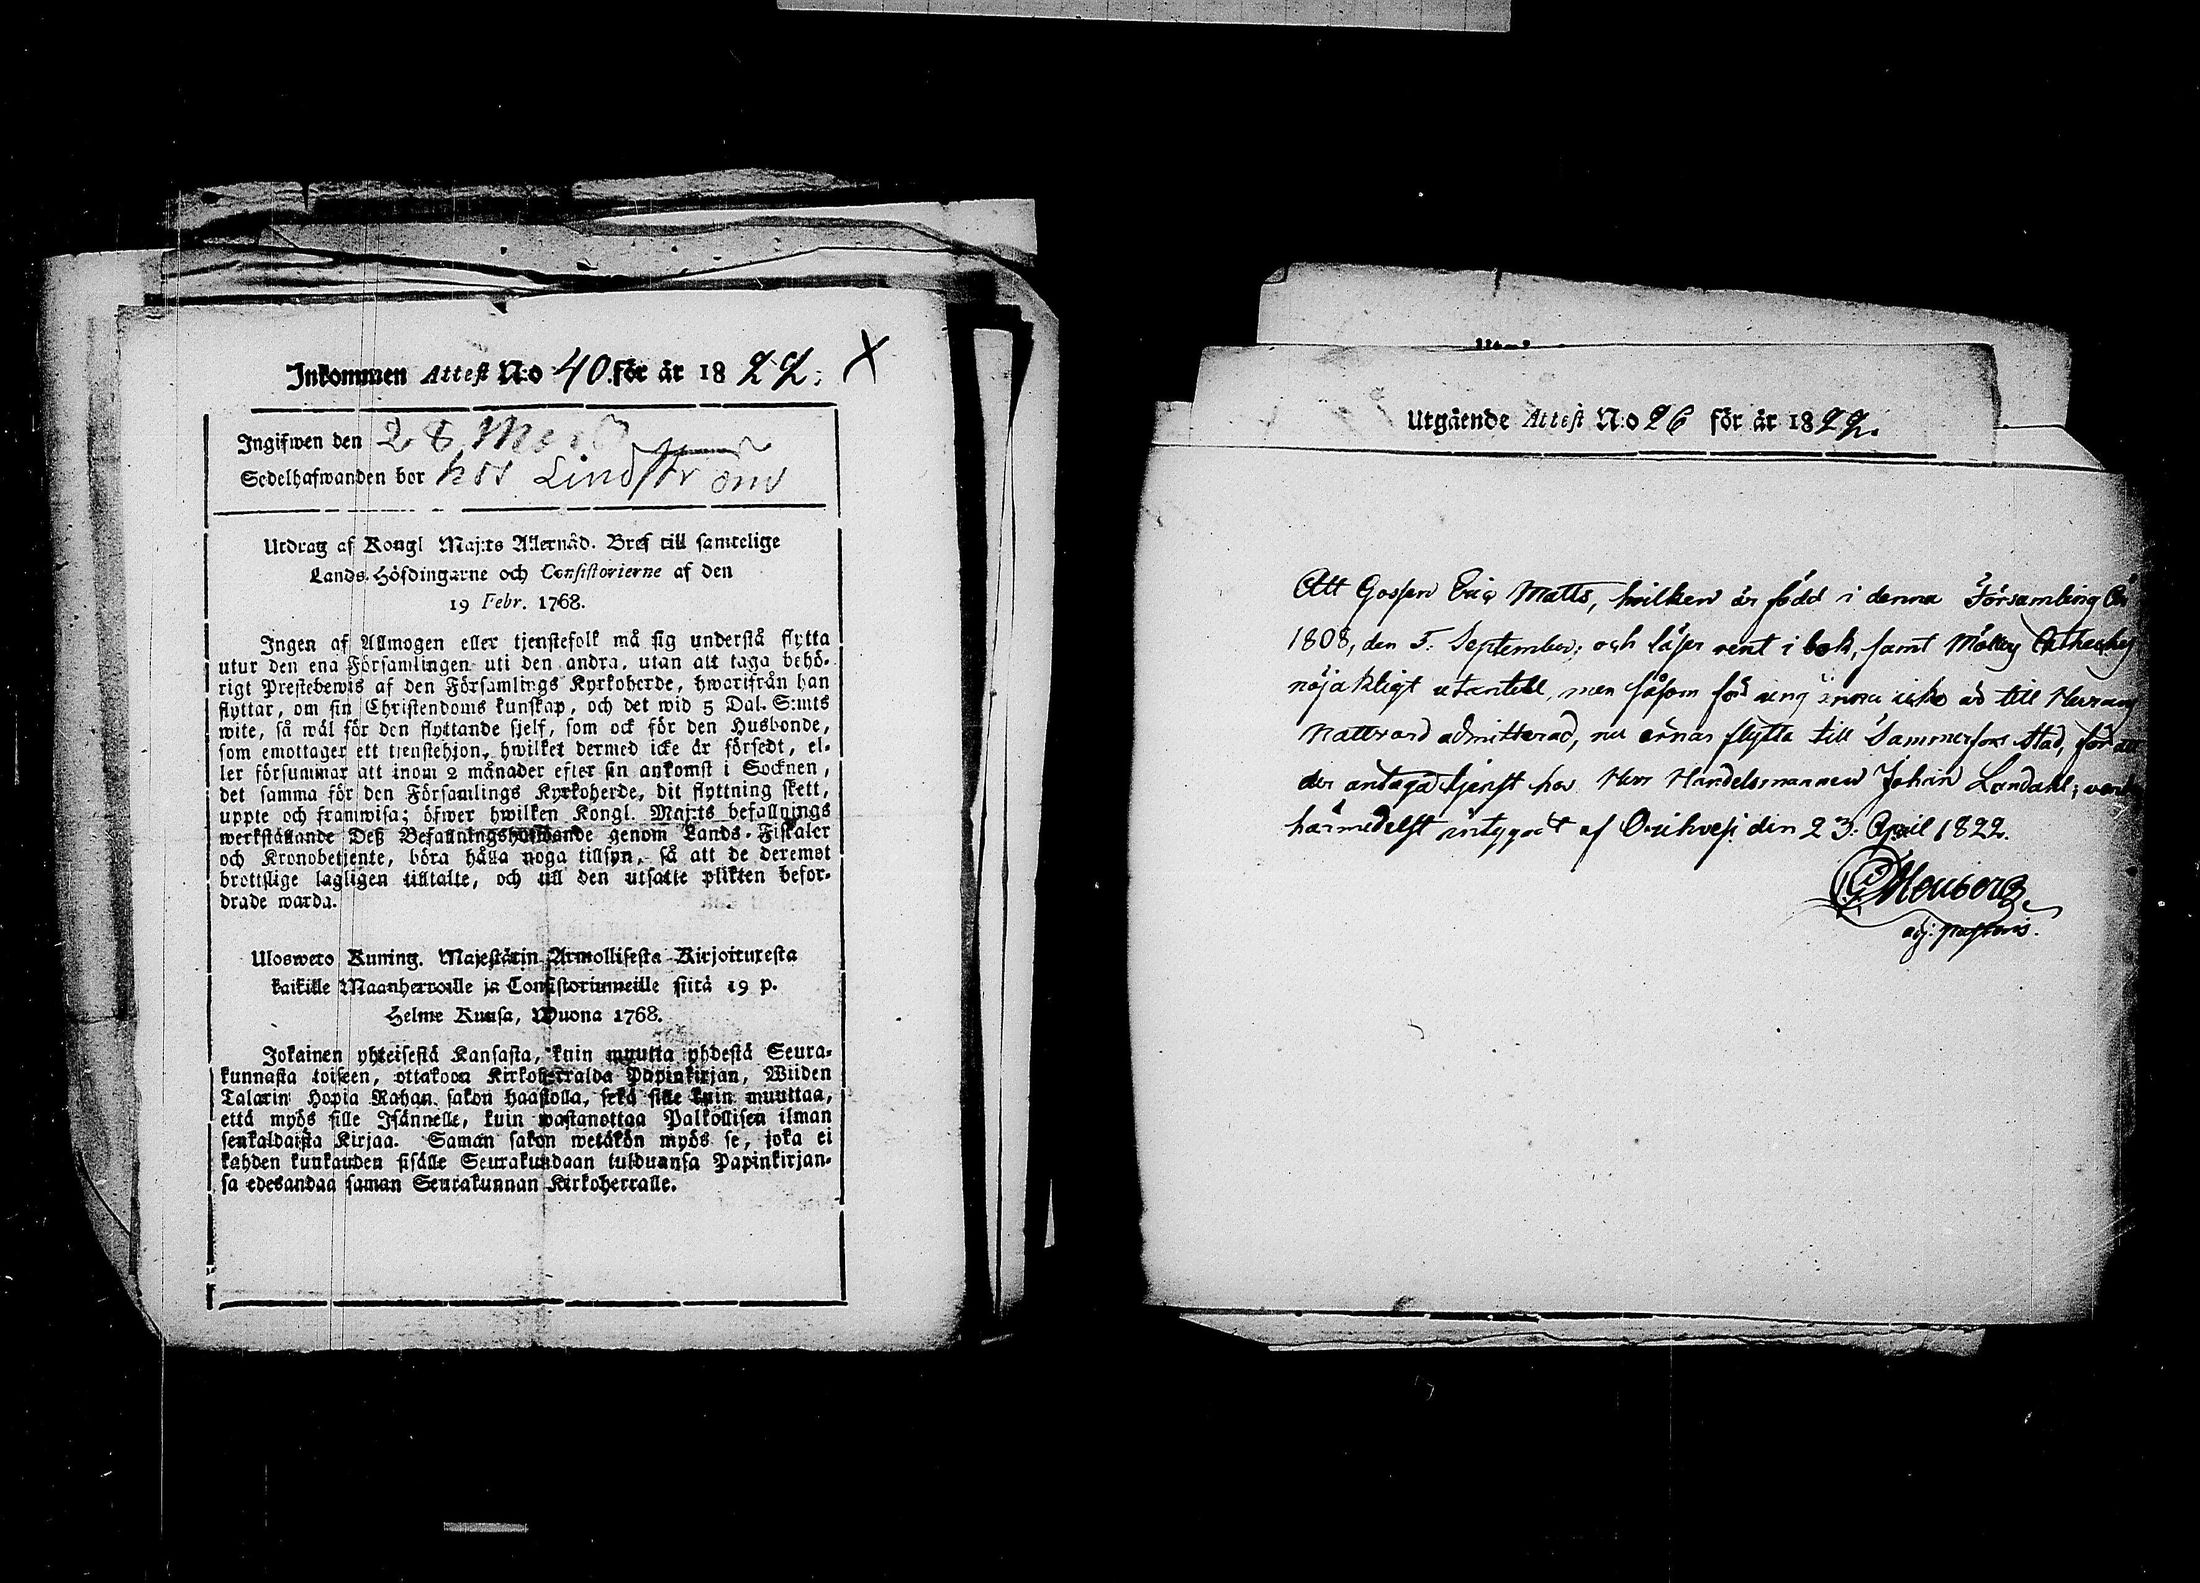 Inkommen Attest N:o 40 för år 1822. X
Ingifwen den 28
Sedelhafwanden bor hos Lindström
Utdrag af Kongl Maj:ts Allernåd. Bref till samtelige
Lands-Höfdingarne och Consistorierne af den
19 Febr. 1768.
Ingen af Allmogen eller tjenstefolk må sig understå flytta
utur den ena Församlingen uti den andra, utan att taga behö-
rigt Prestebewis af den Församlings Kyrkoherde, hwarifrån han
flyttar, om sin Christendoms kunskap, och det wid 5 Dal. S:mts
wite, så wäl för den flyttande sjelf, som ock för den Husbonde,
som emottager ett tjenstehjon, hwilket dermed icke är försedt, el-
ler försummar att inom 2 månader efter sin ankomst i Socknen,
det samma för den Församlings Kyrkoherde, dit flyttning skett,
uppte och framwisa; öfwer hwilken Kongl. Maj:ts befallnings
werkställande Deß Befallningshafwande genom Lands-Fiskaler
och Kronobetjente, böra hålla noga tillsyn, så att de deremot
brottslige lagligen tilltalte, och till den utsatte plikten befor-
drade warda.
Ulosweto Kuning. Majestätin Armollisesta Kirjoituxesta
kaikille Maanherroille ja Consistoriumeille siitä 19 p.
Helme Kuusa, Wuona 1768.
Jokainen yhteisestä Kansasta, kuin muutta yhdestä Seura-
kunnasta toiseen, ottakoon Kirkoherralda Papinkirjan, Wiiden
Talarin Hopia Rahan sakon haastolla, sekä sille kuin muuttaa,
että myös sille Isännelle, kuin wastanottaa Palkollisen ilman
senkaldaista Kirjaa. Saman sakon wetäkön myös se, joka ei
kahden kuukauden sisälle Seurakundaan tulduansa Papinkirjan-
sa edesandaa saman Seurakunnan Kirkoherralle.
Utgående Attest N:o 26 för år 1822.
Att Gossen Eric Matts, hvilken är född i denna Församling
1808, den 5. September, och läser rent i bok, samt
nöjaktligt utantill, men såsom för ung ännu icke är till
Nattvard admitterad, nu ärnar flytta till Tammerfors Stad, för att
der antaga tjenst hos Herr Handelsmannen Johan Londahl;
härmedelst intygadt af Orihvesi den 23. April 1822.
adj: pastoris.